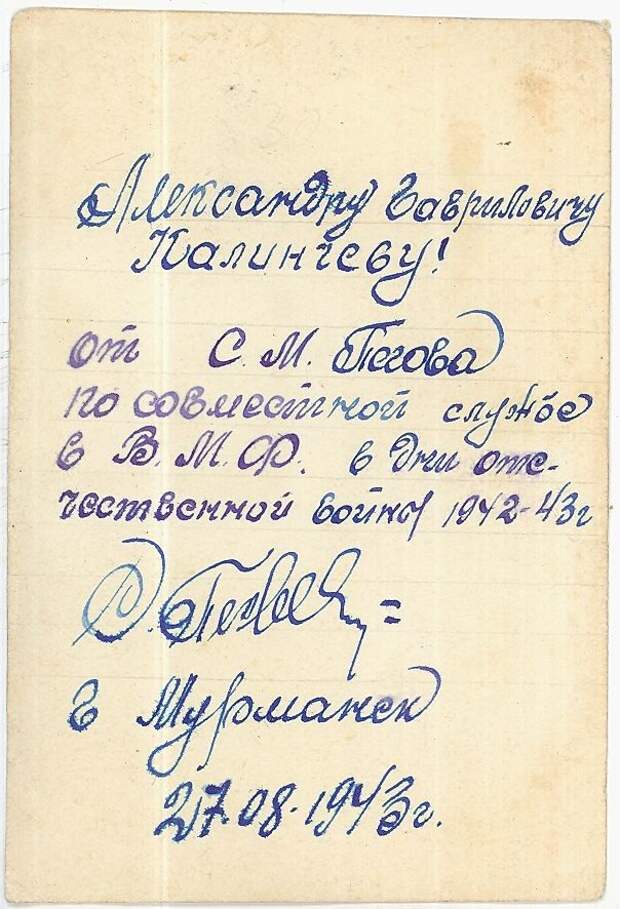 Александру Гавриловичу
Калинчеву!
от С. М. Пегова
по совместной службе
в В. М. Ф. в дни оте-
чественной войны 1942-43г
г Мурманск
27.08.1943г.